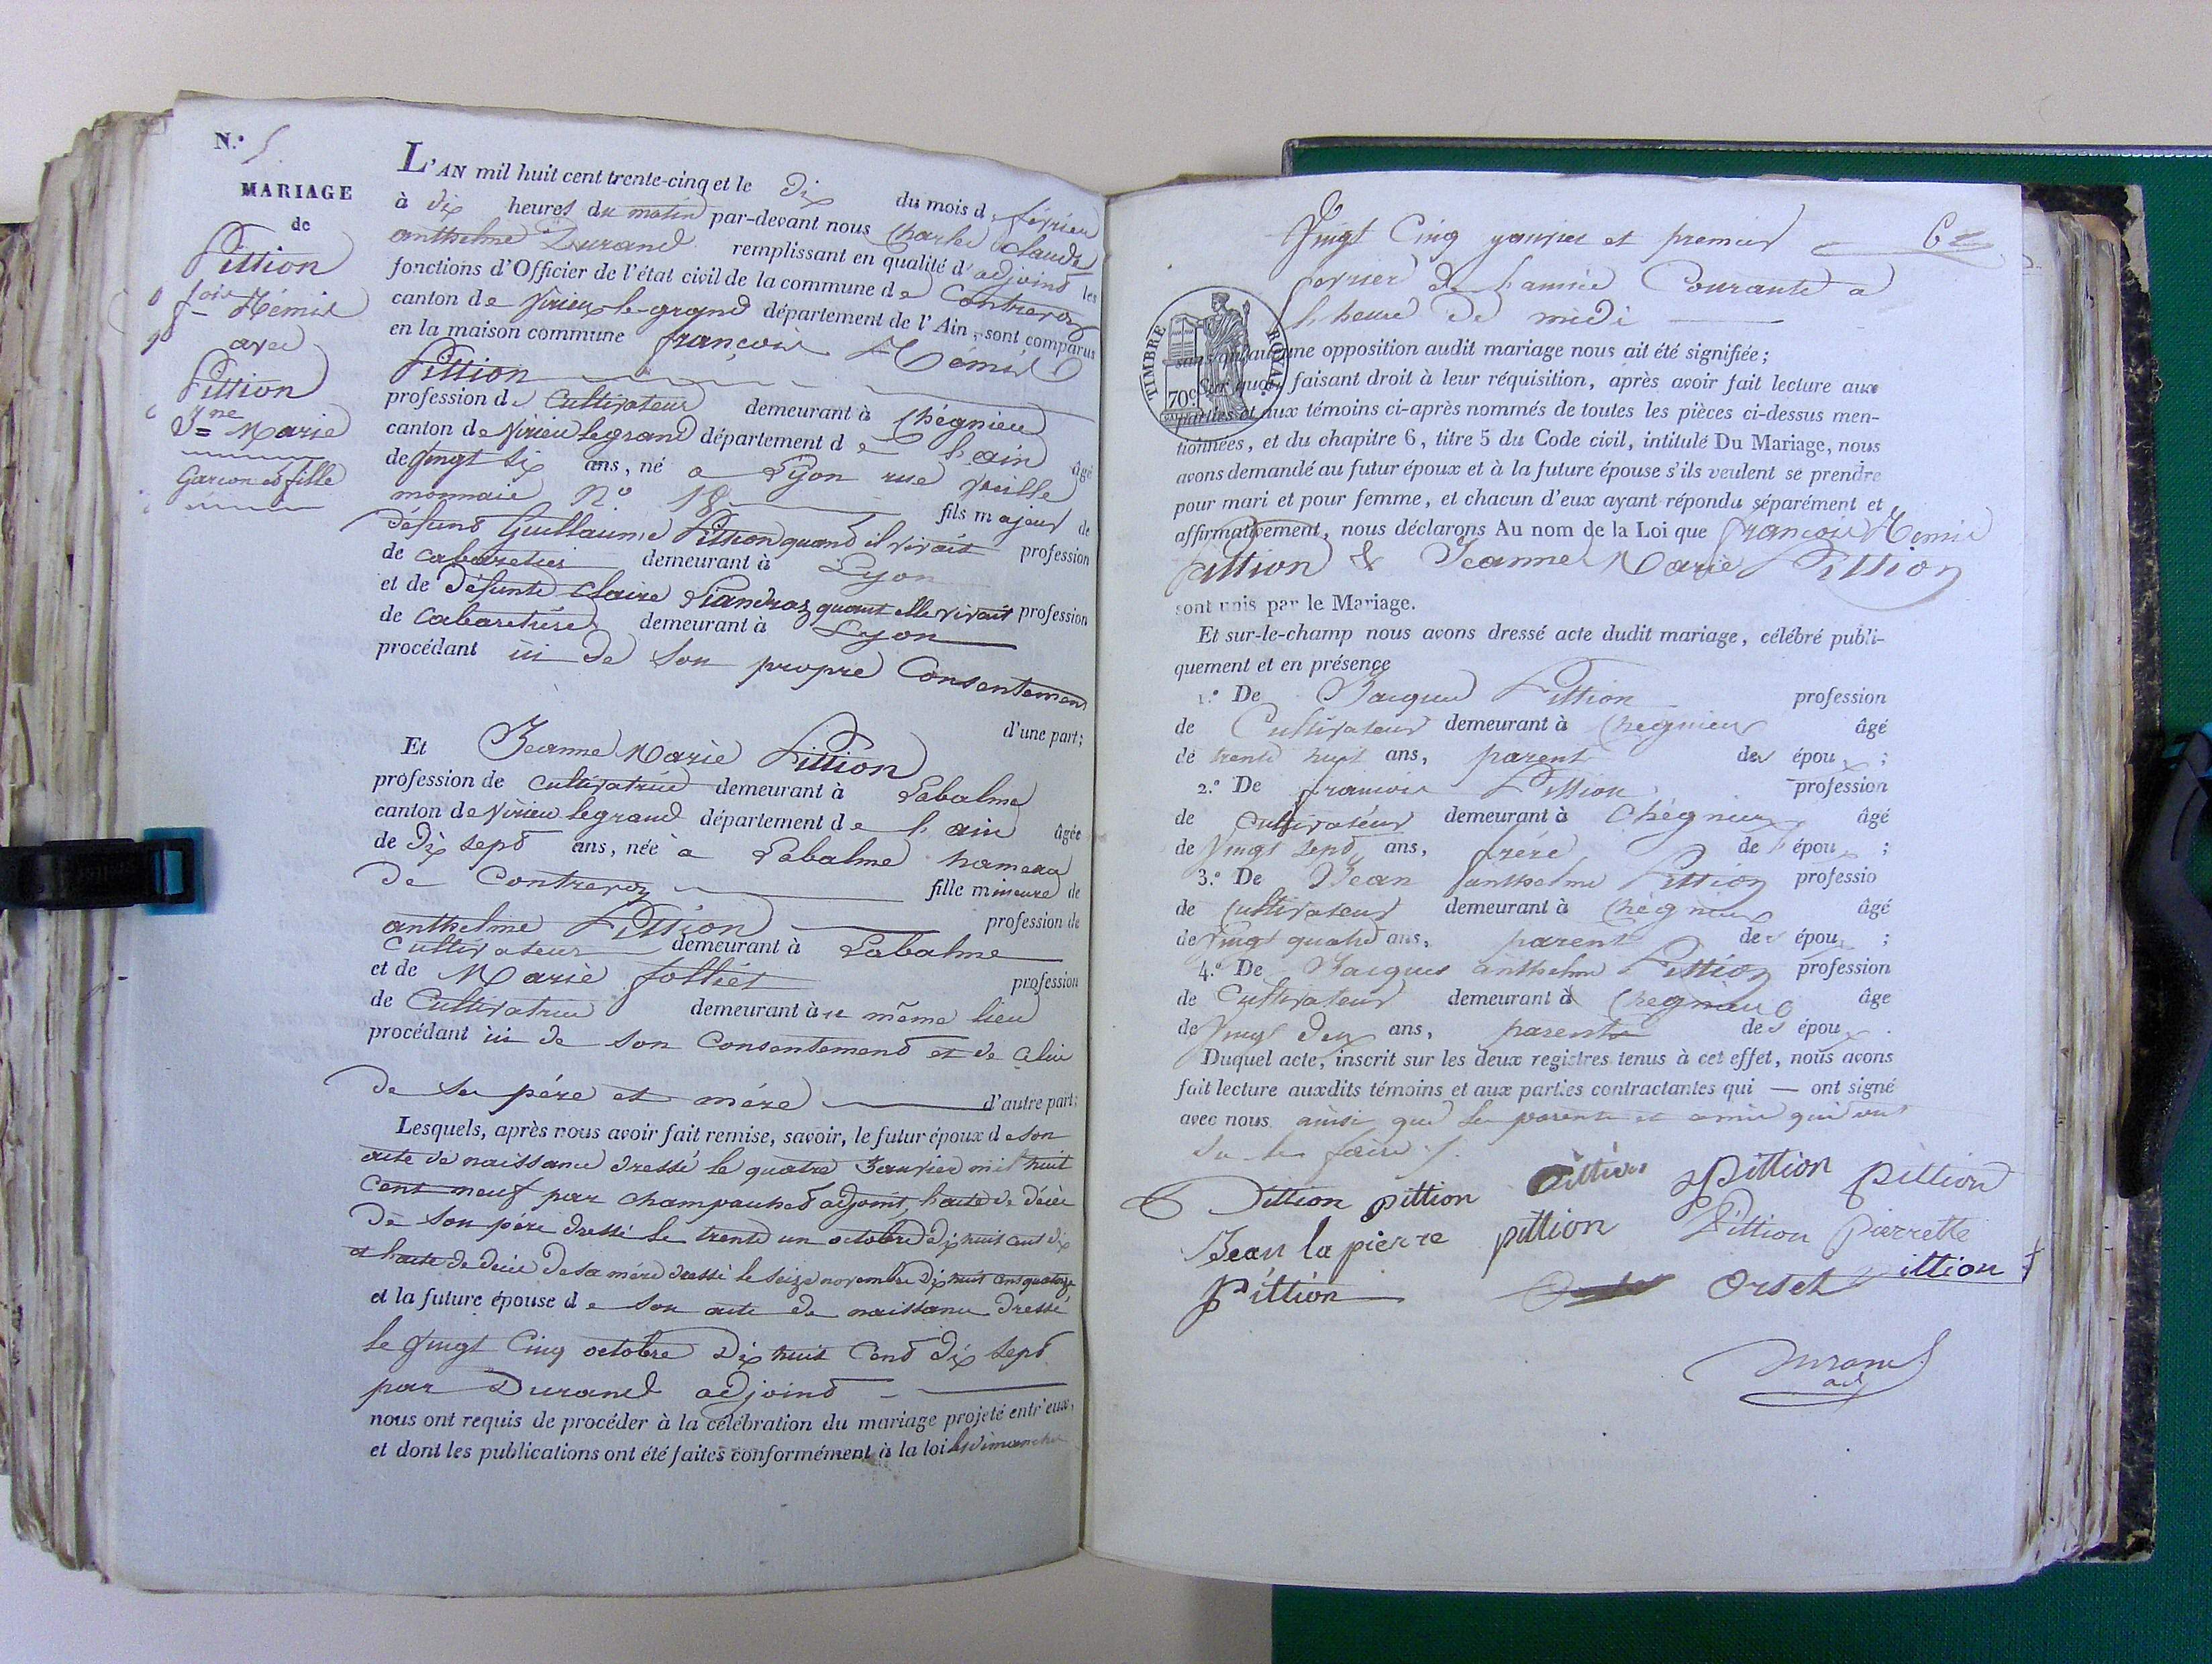 N.° 5
MARIAGE
de
Pittion
fois Rémis
avec
Pittion
Jne Marie
Garcon et fille
L'AN mil huit cent trente-cinq et le Dix du mois de février
à dix heures du matin par-devant nous Charles Claude
anthelme Durand remplissant en qualité d'adjoind les
fonctions d'Officier de l'état civil de la commune de Contrevoz
canton de Virieu-le-grand département de l'Ain, sont comparus
en la maison commune françois Rémis
Pittion
profession de Cultivateur demeurant à Chégnieu
canton de Virieu le grand département de l'ain âgé
de vingt six ans, né a Lyon rue Vieille
monnaie N.° 18 fils majeur de
défund Guillaume Pittion quand il vivait profession
de cabaretier demeurant à Lyon
et de Défunte Claire quant elle vivait profession
de Cabaretière demeurant à Lyon
procédant ici de son propre Consentement
d'une part;
Et Jeanne Marie Pittion
profession de Cultivatrice demeurant à Labalme
canton de Virieu legrand département de l'ain âgée
de Dix sept ans, née a Labalme hameau
de Contrevoz fille mineure de
anthelme Pittion profession de
Cultivateur demeurant à Labalme
et de Marie folliet profession
de Cultivatrice demeurant à même lieu
procédant ici de son Consentement et de celui
de ses père et mère d'autre part;
Lesquels, après nous avoir fait remise, savoir, le futur époux de son
acte de naissance dressé le quatre Janvier mil huit
Cent neuf par adjoint, l'acte de décès
de son père dressé le trente un octobre dix huit cent dix
et l'acte de décès de sa mère dressé le seize novembre dix huit cent quatorze
et la future épouse de son acte de naissance dressé
le vingt Cinq octobre Dix huit Cent dix sept
par Durand adjoind
nous ont requis de procéder à la célébration du mariage projeté entr'eux,
et dont les publications ont été faites conformément à la loi les dimanches
Vingt Cinq janvier et premier 6
fevrier de l'année Courante a
l'heure de midi
TIMBRE ROYAL
70c.
sans qu'aucune opposition audit mariage nous ait été signifiée;
Sur quoi, faisant droit à leur réquisition, après avoir fait lecture aux
parties et aux témoins ci-après nommés de toutes les pièces ci-dessus men-
tionnées, et du chapitre 6, titre 5 du Code civil, intitulé Du Mariage, nous
avons demandé au futur époux et à la future épouse s'ils veulent se prendre
pour mari et pour femme, et chacun d'eux ayant répondu séparément et
affirmativement, nous déclarons Au nom de la Loi que françois Remis
Pittion & Jeanne Marie Pittion
sont unis par le Mariage.
Et sur-le-champ nous avons dressé acte dudit mariage, célébré publi-
quement et en présence
1.° De Jacques Pittion profession
de Cultivateur demeurant à Chegnieu âgé
de trente huit ans, parent des époux;
2.° De francois Pittion profession
de Cultivateur demeurant à Chégnieu âgé
de Vingt sept ans, frère de l'époux;
3.° De Jean anthelme Pittion professio
de Cultivateur demeurant à Chégnieu âgé
de Vingt quatre ans, parent des époux;
4.° De Jacques anthelme Pittion profession
de Cultivateur demeurant à Chegnieu âge
de Vingt deux ans, parent des époux.
Duquel acte, inscrit sur les deux registres tenus à cet effet, nous avons
fait lecture auxdits témoins et aux parties contractantes qui — ont signé
avec nous ainsi que les parents et amis qui ont
su le faire ./.
Pittion pittion Pittion Pittion pittion
Jean la pierre pittion Pittion pierrette
Pittion Orset pittion
Durand
adj